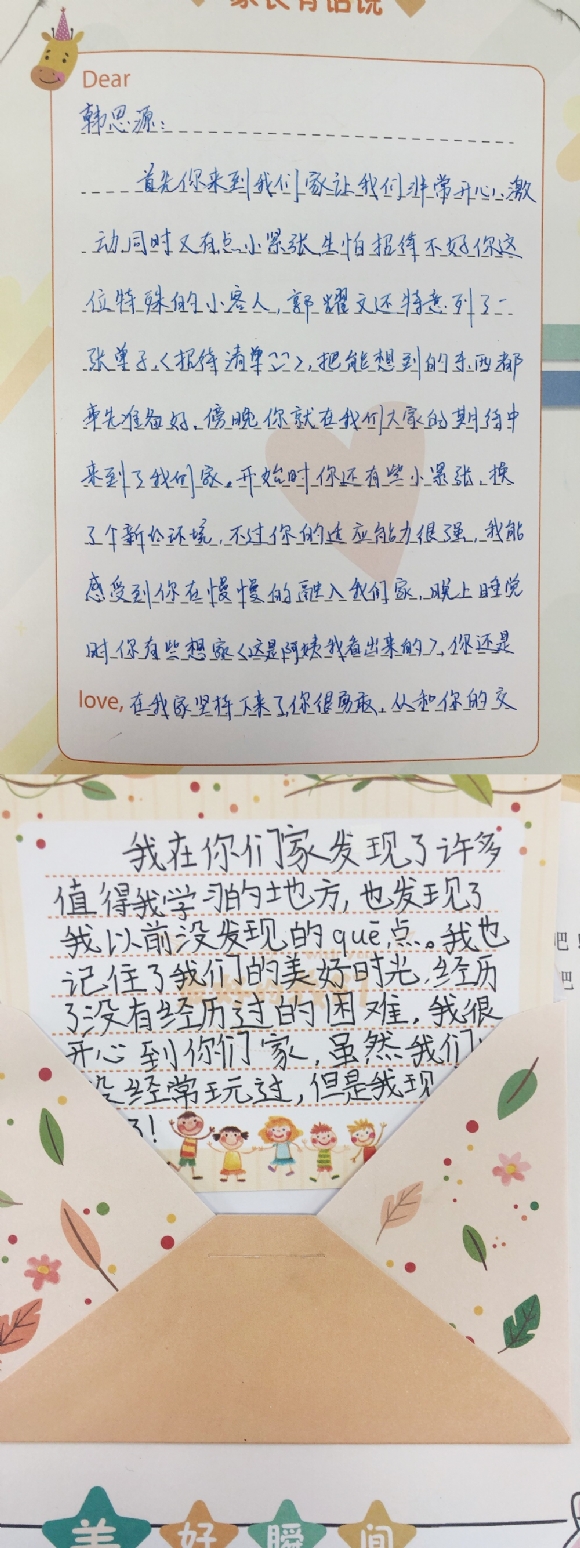 家长有话说
Dear
韩思源：
首先你来到我们家让我们非常开心、激
动同时又有点小紧张生怕招待不好你这
位特殊的小客人，郭耀文还特意列了一
张单子《招待清单》，把能想到的东西都
事先准备好，傍晚你就在我们大家的期待中
来到了我们家。开始时你还有些小紧张，换
了个新的环境，不过你的适应能力很强，我能
感受到你在慢慢的融入我们家，晚上睡觉
时你有些想家《这是阿姨我看出来的》，你还是
love, 在我家坚持下来了，你很勇敢，从和你的交
我在你们家发现了许多
值得我学习的地方，也发现了
我以前没发现的quē点。我也
记住了我们的美好时光，经历
了没有经历过的困难，我很
开心到你们家，虽然我们
没经常玩过，但是我现
了！
吧！
吧
美好瞬间